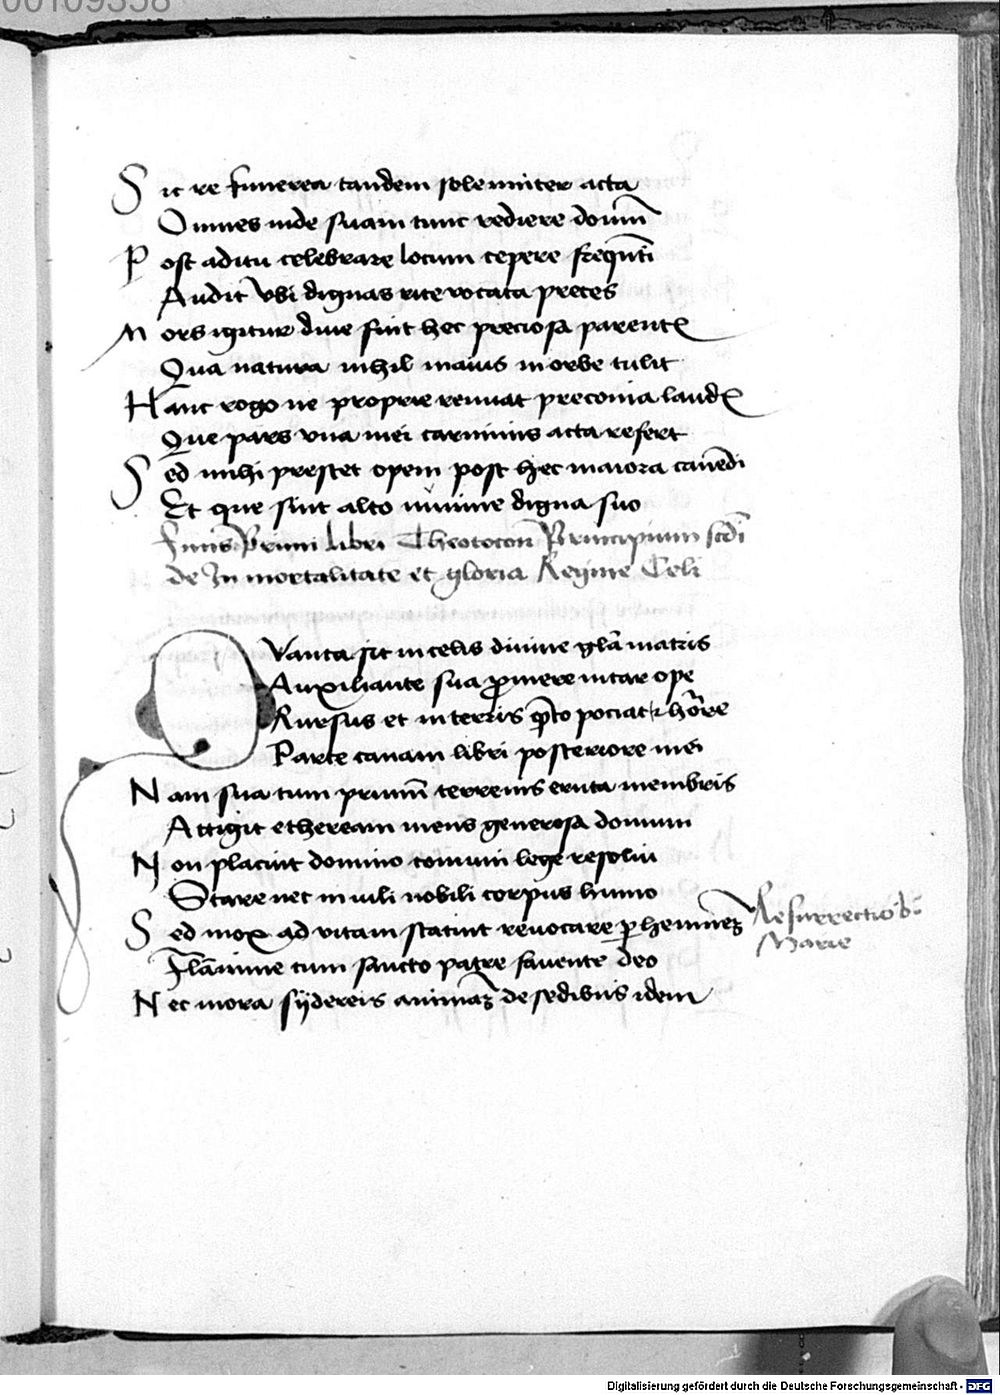 00109358
Sic re funerea tandem solemniter acta
Omnes inde suam tunc rediere domū
Post aditū celebrare locum cepere frequēti
Audit vbi dignas rite vocata preces
Mors igitur diue sint hec preciosa parentꝭ
Qua natura nihil maius in orbe tulit
Hanc rogo ne proprie rennuat preconia laudꝭ
Que pars vna mei carminis acta refert
Sed mihi prestet opem post hec maiora canēdi
Et que sint alto numine digna suo
Finis Primi libri Theotocon Principium scdi
de In mortalitate et gloria Regine Celi
Quanta sit in celis diuine glā matris
Auxiliante sua ꝓmere nitar ope
Rursus et in terris q̄to pociat᷑ honore
Parte canam libri posteriore mei
Nam sua tum primū terrenis eruta membris
Attigit etheream mens generosa domum
Non placuit domino comuni lege resolui
Stare nec in uili nobili corpus humo
Sed mox ad vitam statuit reuocare ꝑhennēꝫ
Flāmine cum sancto patre fauente deo
Nec mora sydereis animāꝫ de sedibus idem
Resurrectio b.
Marie
Digitalisierung gefördert durch die Deutsche Forschungsgemeinschaft - DFG